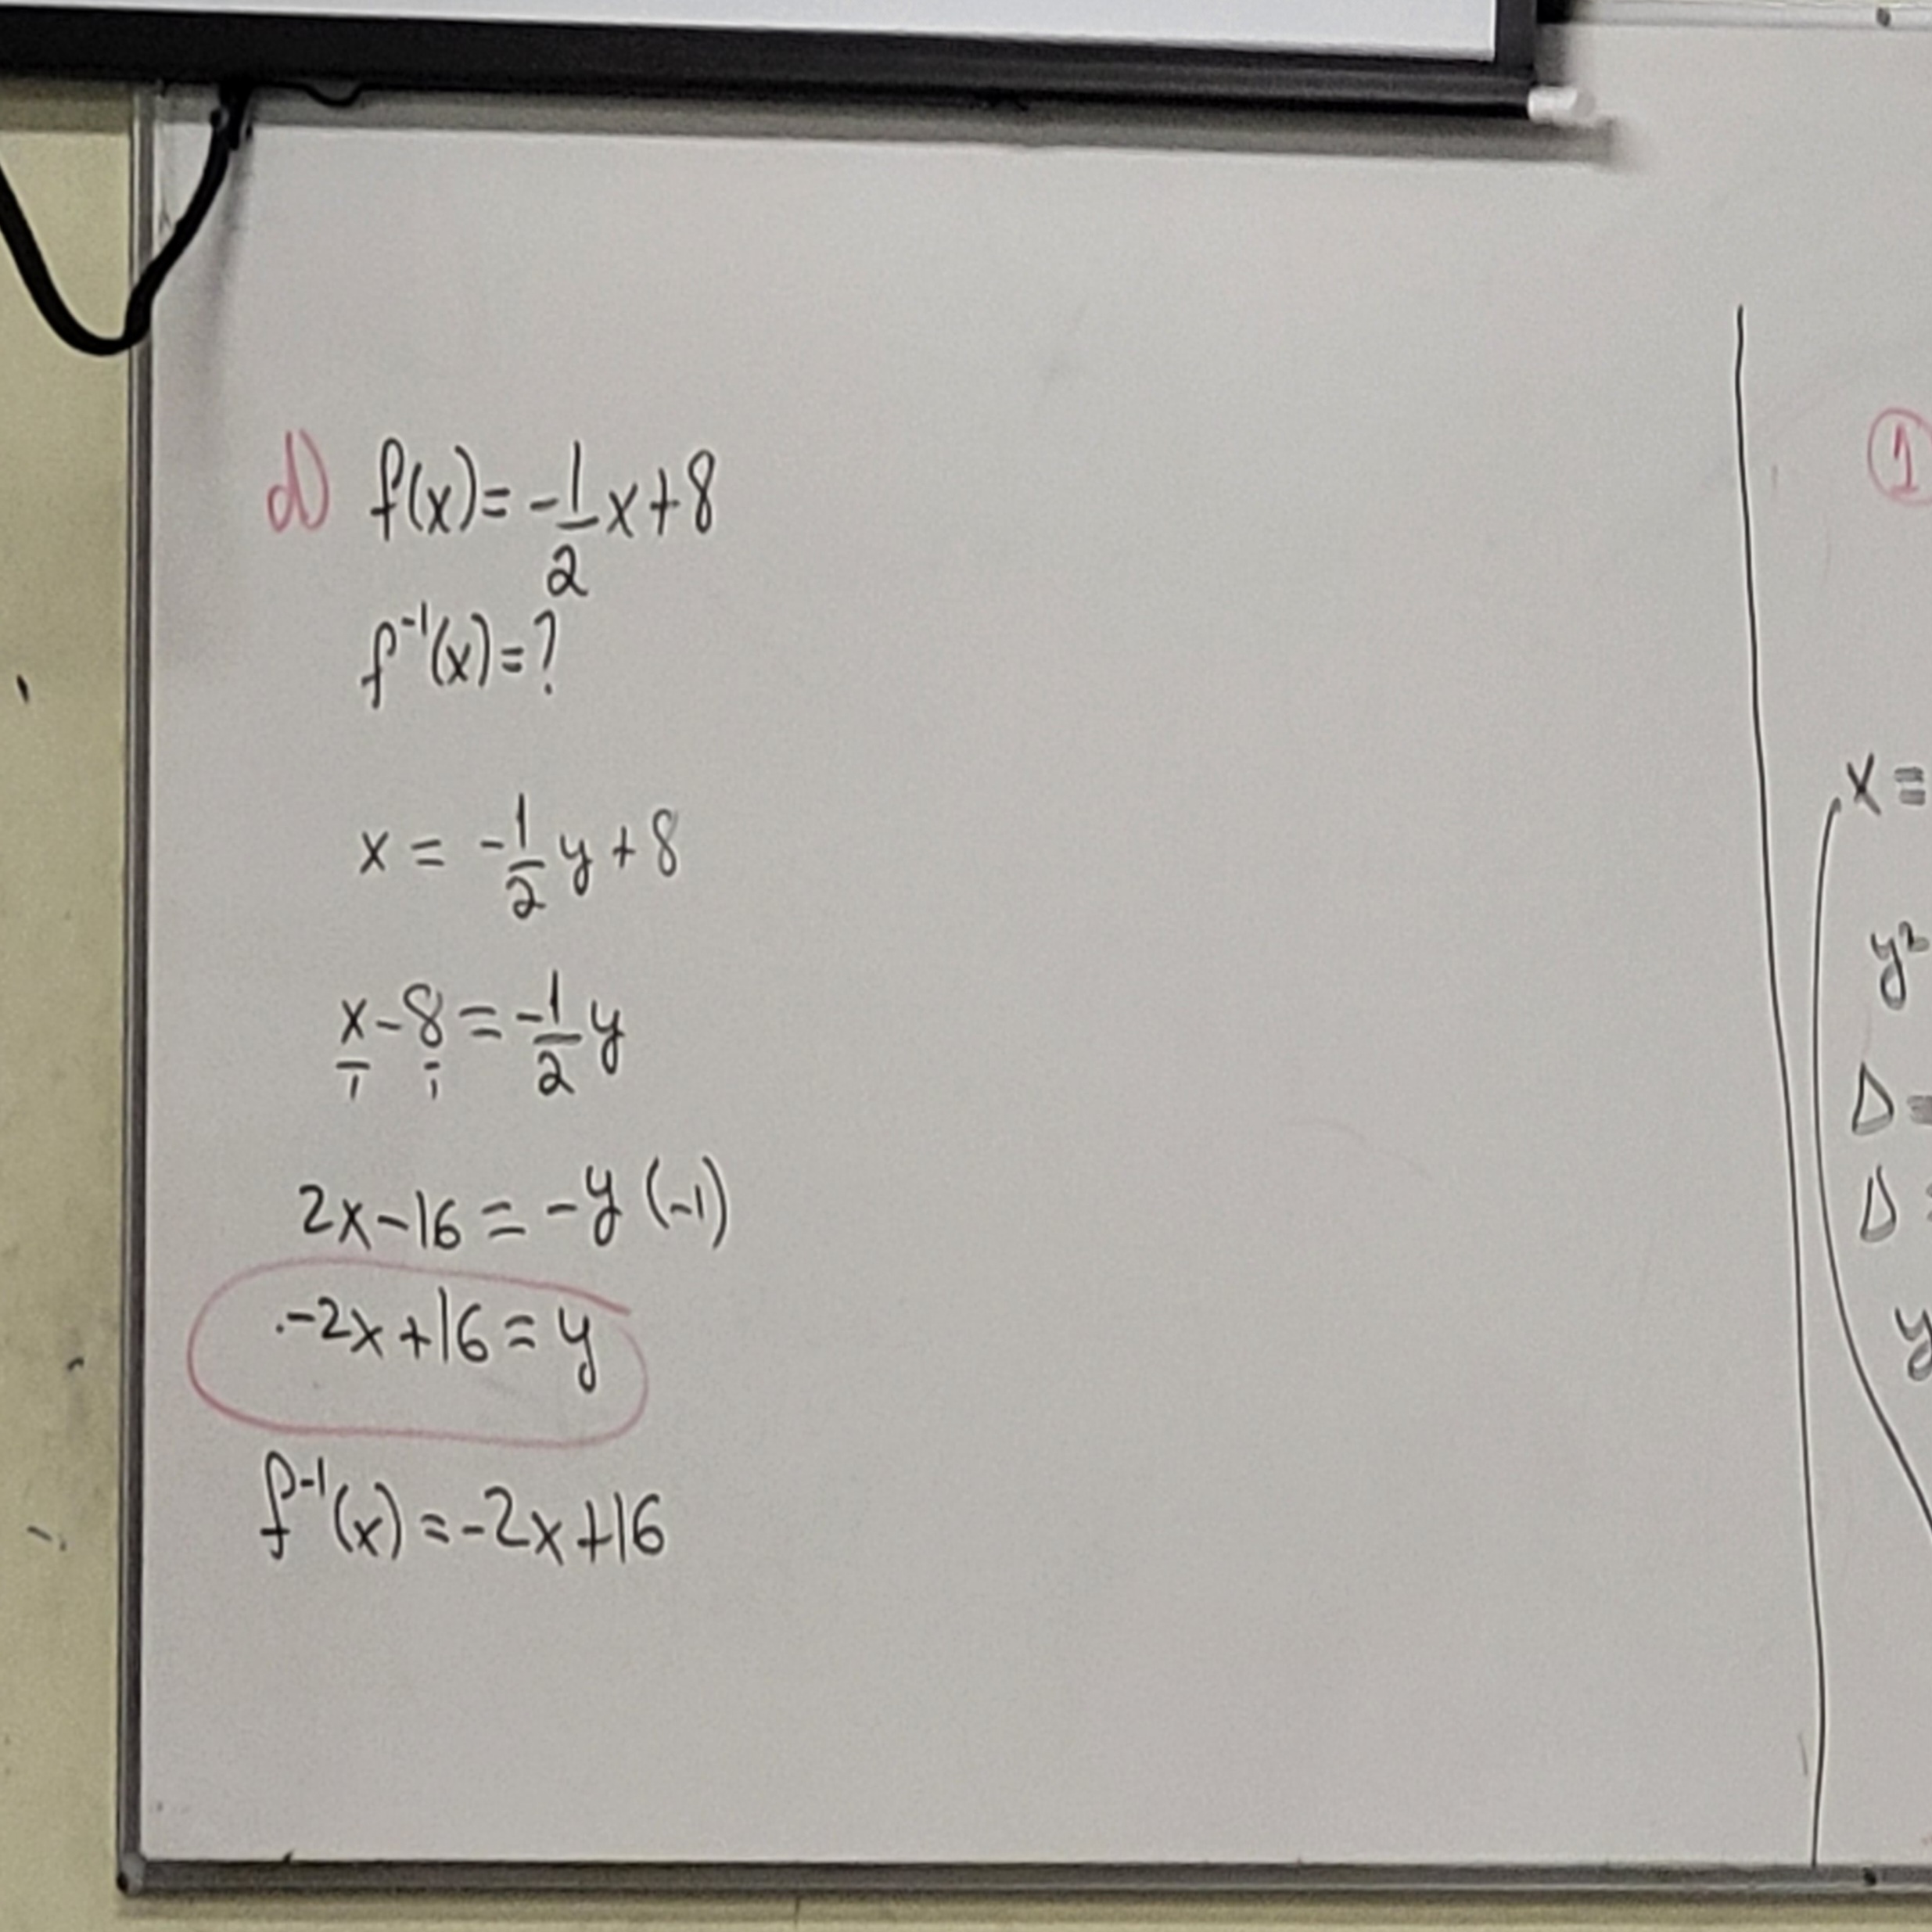 d) f(x)=-1/2x+8
f⁻¹(x)=?
x = -1/2 y+8
x/1-8/1=-1/2 y
2x-16=-y (-1)
.-2x+16=y
f⁻¹(x)=-2x+16
①
x=
y²
Δ=
Δ
y